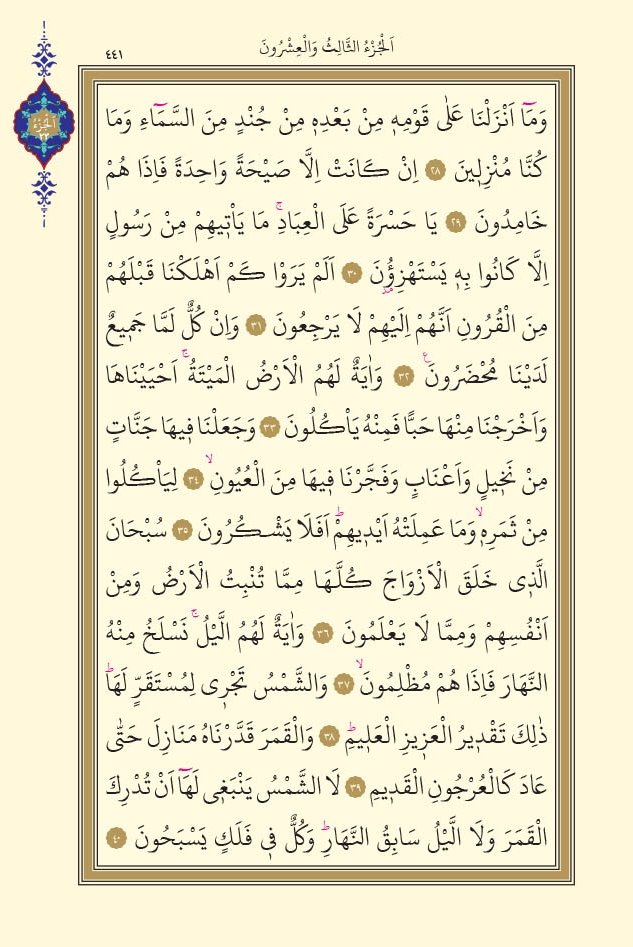 ٤٤١
اَلْجُزْءُ الثَّالِثُ وَالْعِشْرُونَ
اَلْجُزْءُ
٢٣
وَمَٓا اَنْزَلْنَا عَلٰى قَوْمِه۪ مِنْ بَعْدِه۪ مِنْ جُنْدٍ مِنَ السَّمَٓاءِ وَمَا
كُنَّا مُنْزِل۪ينَ ٢٨ اِنْ كَانَتْ اِلَّا صَيْحَةً وَاحِدَةً فَاِذَا هُمْ
خَامِدُونَ ٢٩ يَا حَسْرَةً عَلَى الْعِبَادِۚ مَا يَأْت۪يهِمْ مِنْ رَسُولٍ
اِلَّا كَانُوا بِه۪ يَسْتَهْزِؤُ۫نَ ٣٠ اَلَمْ يَرَوْا كَمْ اَهْلَكْنَا قَبْلَهُمْ
مِنَ الْقُرُونِ اَنَّهُمْ اِلَيْهِمْ لَا يَرْجِعُونَ ٣١ وَاِنْ كُلٌّ لَمَّا جَم۪يعٌ
لَدَيْنَا مُحْضَرُونَ۟ ٣٢ وَاٰيَةٌ لَهُمُ الْاَرْضُ الْمَيْتَةُۚ اَحْيَيْنَاهَا
وَاَخْرَجْنَا مِنْهَا حَبًّا فَمِنْهُ يَأْكُلُونَ ٣٣ وَجَعَلْنَا ف۪يهَا جَنَّاتٍ
مِنْ نَخ۪يلٍ وَاَعْنَابٍ وَفَجَّرْنَا ف۪يهَا مِنَ الْعُيُونِۙ ٣٤ لِيَأْكُلُوا
مِنْ ثَمَرِه۪ۙ وَمَا عَمِلَتْهُ اَيْد۪يهِمْۜ اَفَلَا يَشْكُرُونَ ٣٥ سُبْحَانَ
الَّذ۪ي خَلَقَ الْاَزْوَاجَ كُلَّهَا مِمَّا تُنْبِتُ الْاَرْضُ وَمِنْ
اَنْفُسِهِمْ وَمِمَّا لَا يَعْلَمُونَ ٣٦ وَاٰيَةٌ لَهُمُ الَّيْلُۚ نَسْلَخُ مِنْهُ
النَّهَارَ فَاِذَا هُمْ مُظْلِمُونَۙ ٣٧ وَالشَّمْسُ تَجْر۪ي لِمُسْتَقَرٍّ لَهَاۜ
ذٰلِكَ تَقْد۪يرُ الْعَز۪يزِ الْعَل۪يمِۜ ٣٨ وَالْقَمَرَ قَدَّرْنَاهُ مَنَازِلَ حَتّٰى
عَادَ كَالْعُرْجُونِ الْقَد۪يمِ ٣٩ لَا الشَّمْسُ يَنْبَغ۪ي لَهَٓا اَنْ تُدْرِكَ
الْقَمَرَ وَلَا الَّيْلُ سَابِقُ النَّهَارِۜ وَكُلٌّ ف۪ي فَلَكٍ يَسْبَحُونَ ٤٠